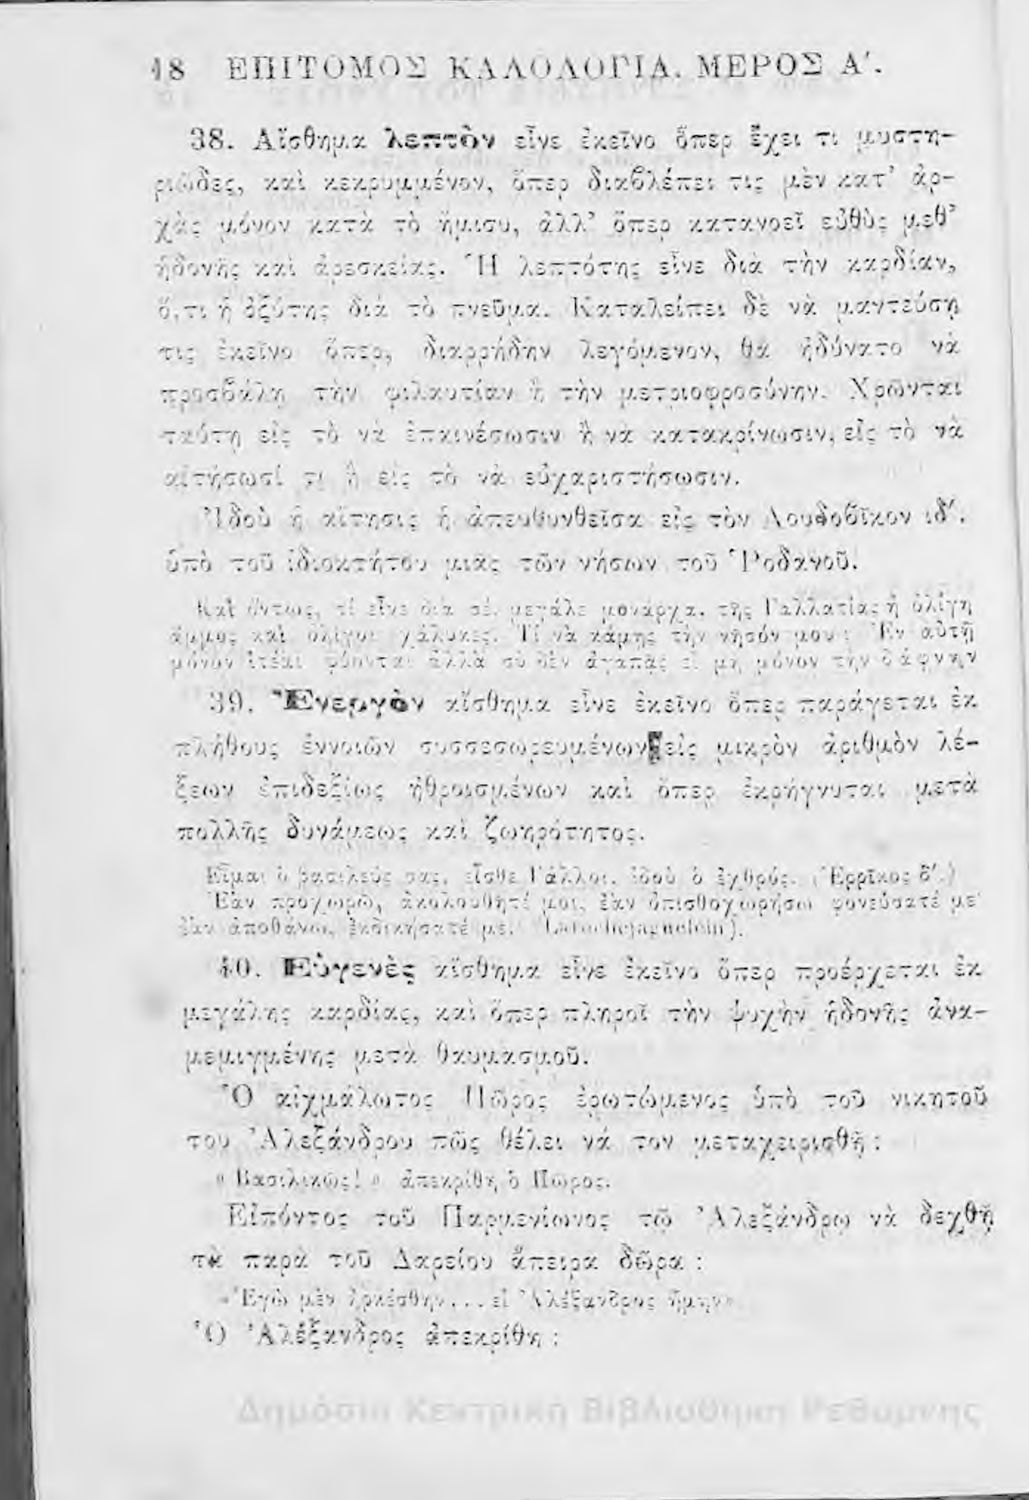 18 ΕΠΙΤΟΜΟΣ ΚΑΛΟΛΟΓΙΑ. ΜΕΡΟΣ Α΄.
38. Αἴσθημα λεπτὸν εἶνε ἐκεῖνο ὅπερ ἔχει τι μυστη-
ριῶδες, καὶ κεκρυμμένον, ὅπερ διαβλέπει τις μὲν κατ' ἀρ-
χὰς μόνον κατὰ τὸ ἥμισυ, ἀλλ' ὅπερ κατανοεῖ εὐθὺς μεθ'
ἡδονῆς καὶ ἀρεσκείας. Ἡ λεπτότης εἶνε διὰ τὴν καρδίαν,
ὅ,τι ἡ ὀξύτης διὰ τὸ πνεῦμα. Καταλείπει δὲ νὰ μαντεύσῃ
τις ἐκεῖνο ὅπερ, διαρρήδην λεγόμενον, θὰ ἠδύνατο νὰ
προσβάλῃ τὴν φιλαυτίαν ἢ τὴν μετριοφροσύνην. Χρῶνται
ταύτῃ εἰς τὸ νὰ ἐπαινέσωσιν ἢ νὰ κατακρίνωσιν, εἰς τὸ νὰ
αἰτήσωσί τι ἢ εἰς τὸ νὰ εὐχαριστήσωσιν.
Ἰδοὺ ἡ αἴτησις ἡ ἀπευθυνθεῖσα εἰς τὸν Λουδοβῖκον ιδ΄.
ὑπὸ τοῦ ἰδιοκτήτου μιᾶς τῶν νήσων τοῦ Ῥοδανοῦ.
Καὶ ὄντως, τί εἶνε διὰ σέ, μεγάλε μονάρχα, τῆς Γαλλατίας ἡ ὀλίγη
ἄμμος καὶ ὀλίγοι χάλικες. Τί νὰ κάμῃς τὴν νῆσόν μου ; Ἐν αὐτῇ
μόνον ἰτέαι φύονται ἀλλὰ σὺ δὲν ἀγαπᾷς εἰ μὴ μόνον τὴν δάφνην
39. Ἐνεργὸν αἴσθημα εἶνε ἐκεῖνο ὅπερ παράγεται ἐκ
πλήθους ἐννοιῶν συσσεσωρευμένων εἰς μικρὸν ἀριθμὸν λέ-
ξεων ἐπιδεξίως ἠθροισμένων καὶ ὅπερ ἐκρήγνυται μετὰ
πολλῆς δυνάμεως καὶ ζωηρότητος.
Εἶμαι ὁ βασιλεύς σας, εἶσθε Γάλλοι, ἰδοὺ ὁ ἐχθρός. (Ἐρρῖκος δ΄.)
Ἐὰν προχωρῶ, ἀκολουθῆτέ μοι, ἐὰν ὀπισθοχωρήσω φονεύσατέ με
ἐὰν ἀποθάνω, ἐκδικήσατέ με. Larochejaquelein).
40. Εὐγενὲς αἴσθημα εἶνε ἐκεῖνο ὅπερ προέρχεται ἐκ
μεγάλης καρδίας, καὶ ὅπερ πληροῖ τὴν ψυχὴν ἡδονῆς ἀνα-
μεμιγμένης μετὰ θαυμασμοῦ.
Ὁ αἰχμάλωτος Πῶρος ἐρωτώμενος ὑπὸ τοῦ νικητοῦ
του Ἀλεξάνδρου πῶς θέλει νά τον μεταχειρισθῇ :
« Βασιλικῶς! » ἀπεκρίθη ὁ Πῶρος.
Εἰπόντος τοῦ Παρμενίωνος τῷ Ἀλεξάνδρῳ νὰ δεχθῇ
τὰ παρὰ τοῦ Δαρείου ἄπειρα δῶρα :
«Ἐγὼ μὲν ἠρκέσθην... εἰ Ἀλέξανδρος ἤμην»
Ὁ Ἀλέξανδρος ἀπεκρίθη :
Δημόσια Κεντρική Βιβλιοθήκη Ρεθύμνης